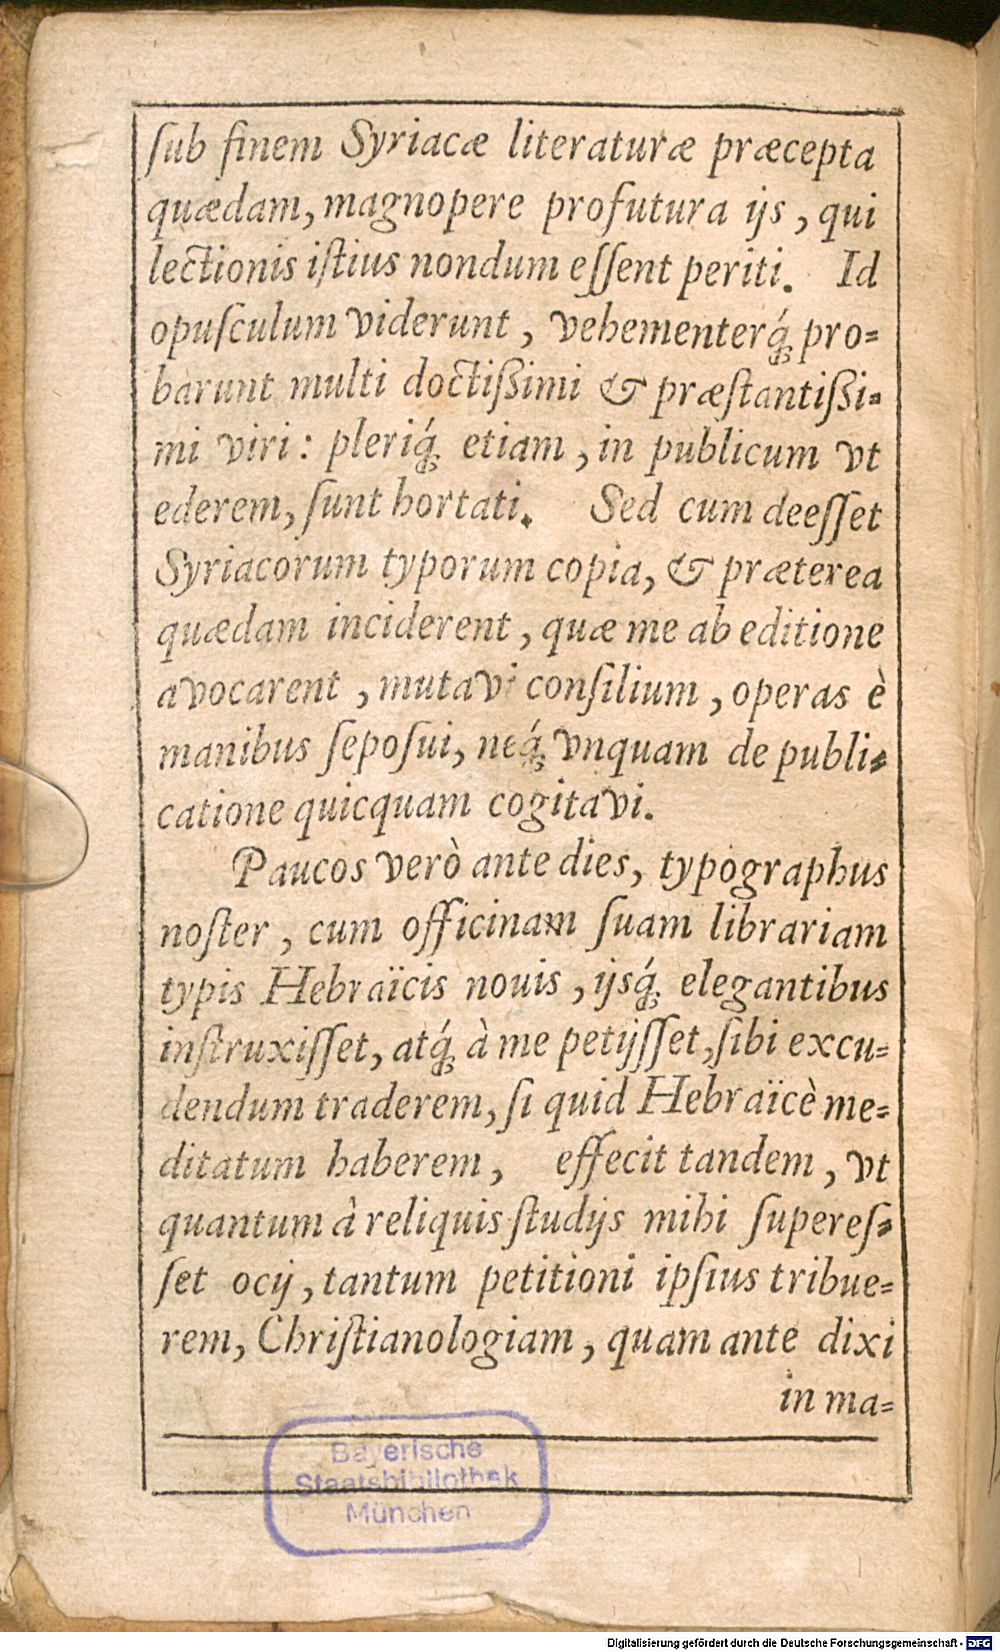 ſub finem Syriacæ literaturæ præcepta
quædam, magnopere profutura ijs, qui
lectionis iſtius nondum eſſent periti. Id
opuſculum viderunt, vehementerq́; pro-
barunt multi doctißimi & præſtantißi-
mi viri: pleriq́; etiam, in publicum vt
ederem, ſunt hortati. Sed cum deeſſet
Syriacorum typorum copia, & præterea
quædam inciderent, quæ me ab editione
avocarent, mutavi conſilium, operas è
manibus ſepoſui, neq́; vnquam de publi-
catione quicquam cogitavi.
Paucos verò ante dies, typographus
noſter, cum officinam ſuam librariam
typis Hebraïcis nouis, ijsq́; elegantibus
inſtruxiſſet, atq́; à me petijſſet, ſibi excu-
dendum traderem, ſi quid Hebraïcè me-
ditatum haberem, effecit tandem, vt
quantum à reliquis ſtudijs mihi ſupereſ-
ſet ocij, tantum petitioni ipſius tribue-
rem, Chriſtianologiam, quam ante dixi
in ma-
Bayerische
Staatsbibliothek
München
Digitalisierung gefördert durch die Deutsche Forschungsgemeinschaft - DFG